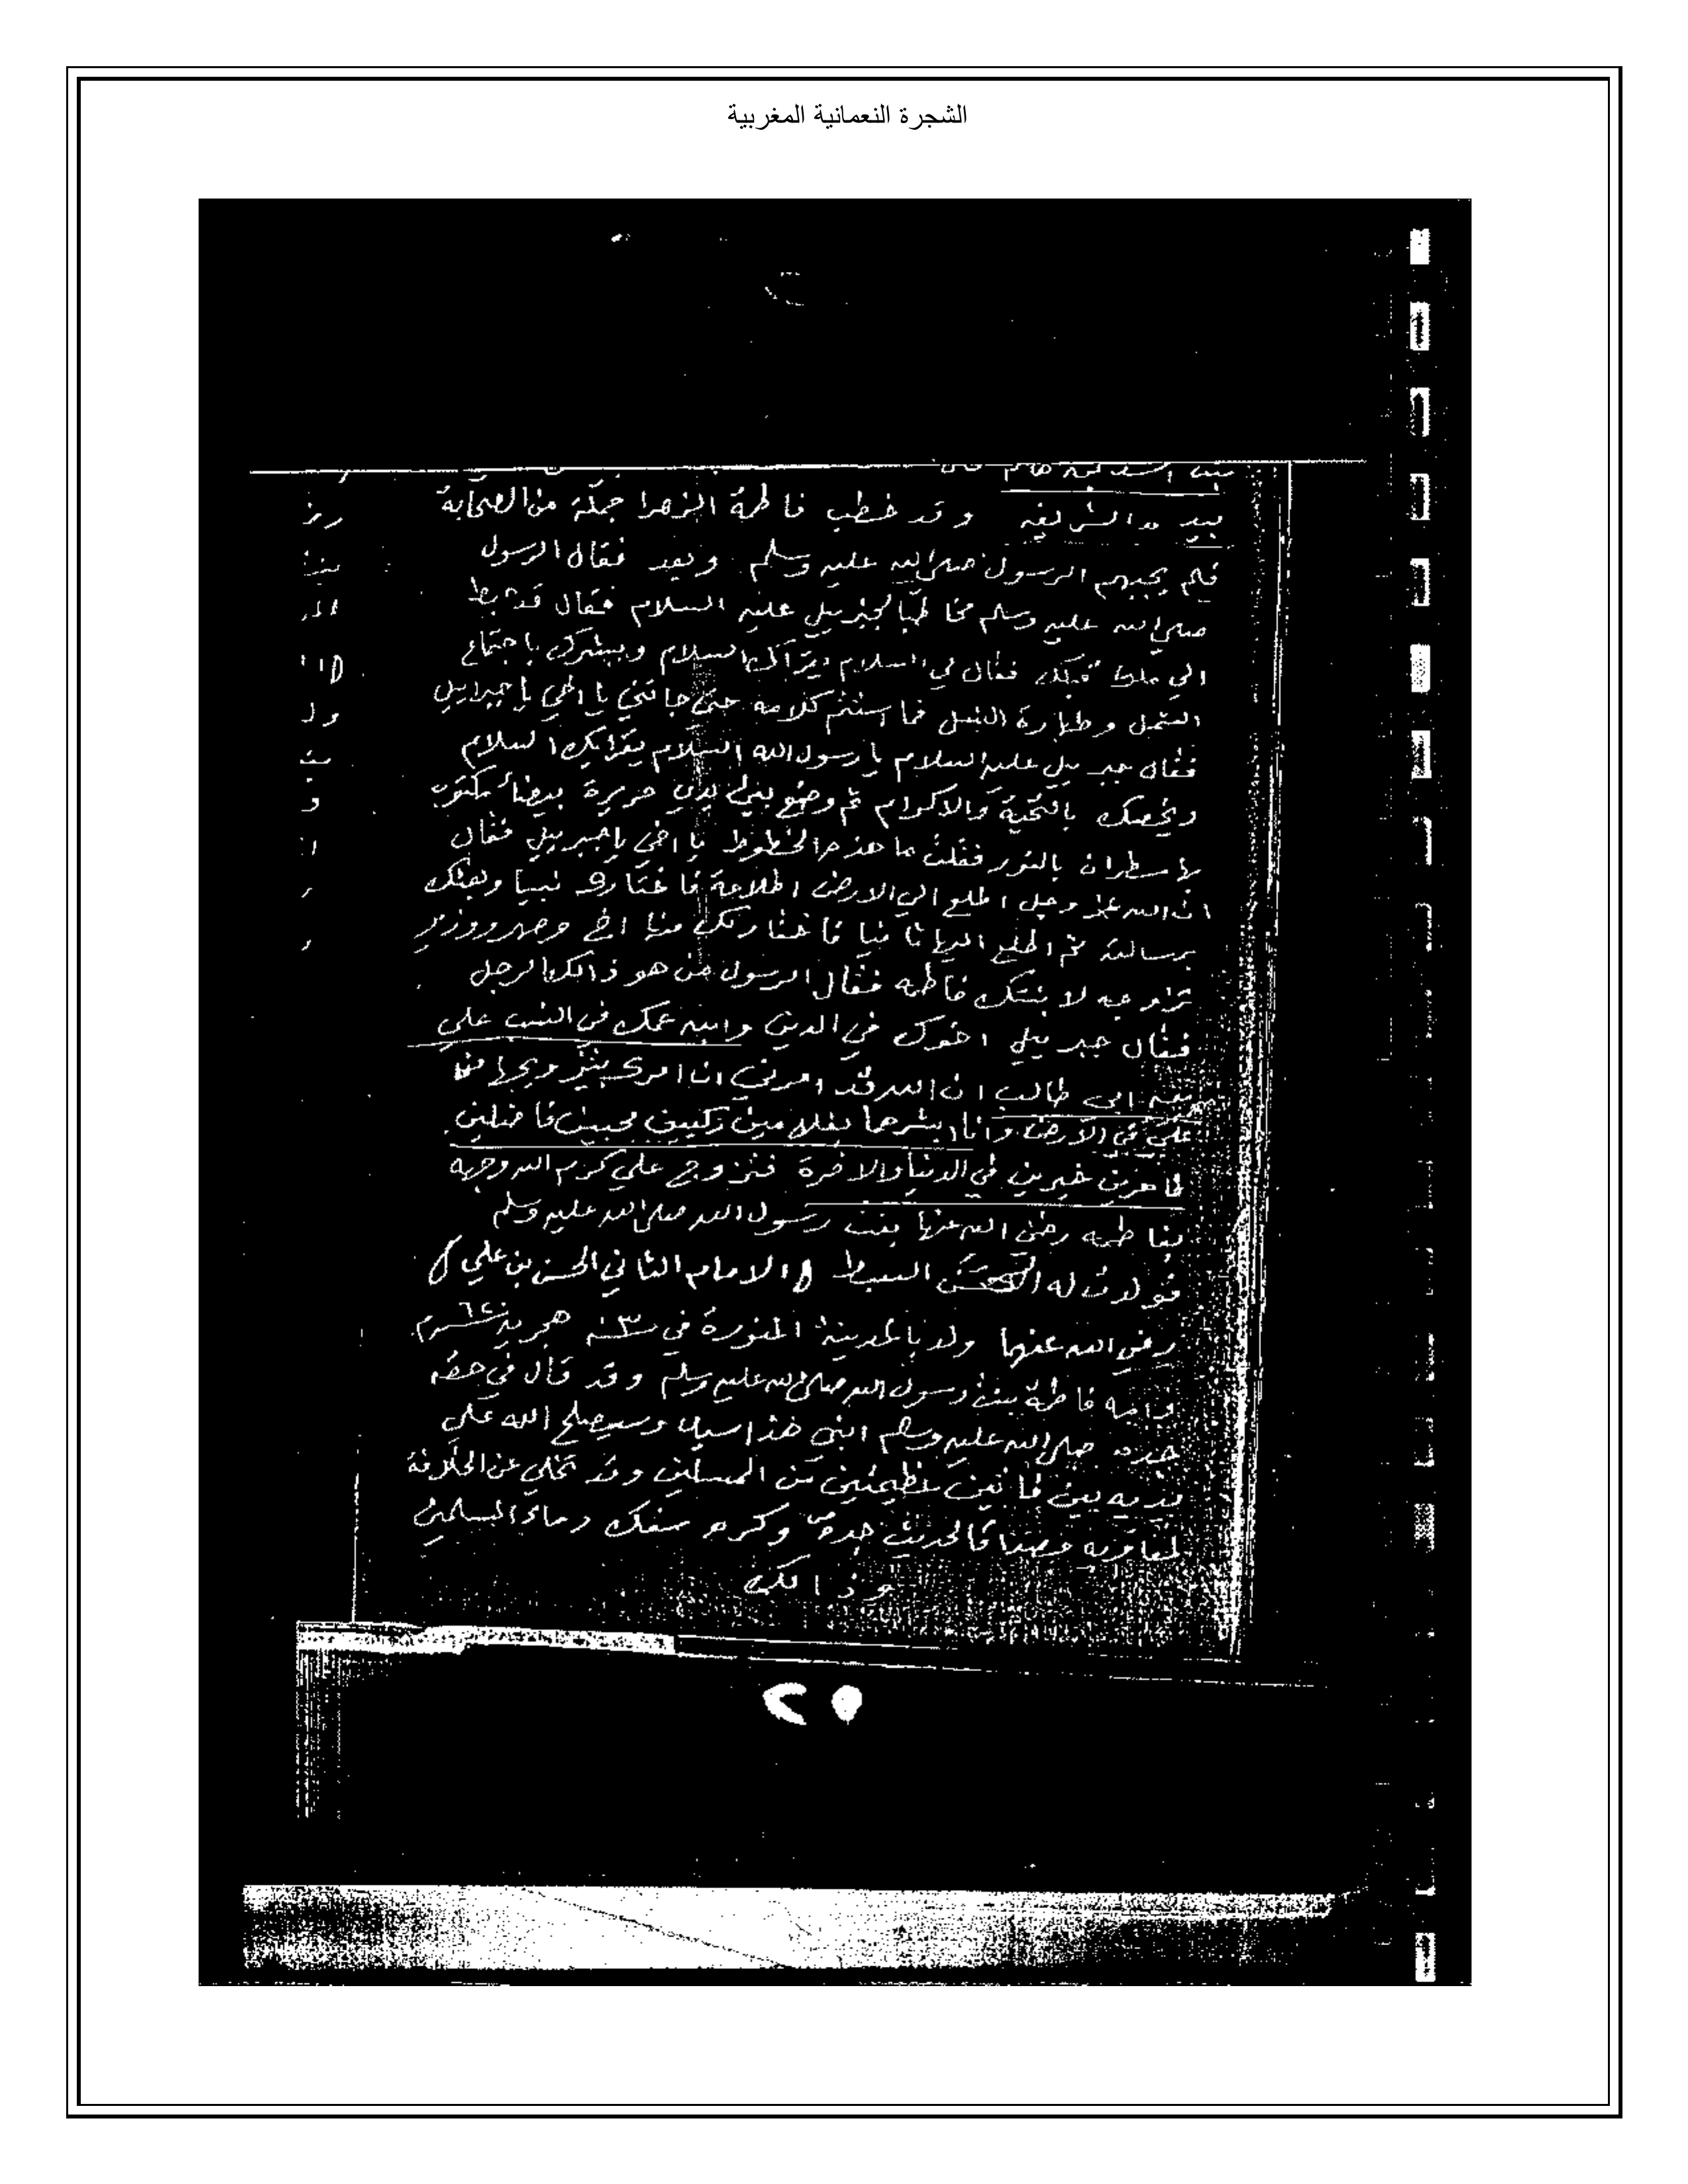 الشجرة النعمانية المغربية
بيده الشريفه وقد خطب فاطمة الزهرا جملة من الصحابة
فلم يجيبهم الرسول صلى الله عليه وسلم وبعد فقال الرسول
صلى الله عليه وسلم مخاطبا لجبريل عليه السلام فقال قد هبط
الي ملك قبلك فقال لي السلام يقرآك السلام ويبشرك باجتماع
الشمل وطهارة النسل فما استتم كلامه حتى جائني يا اخي يا جبرايل
فقال جبريل عليه السلام يا رسول الله السلام يقرايك السلام
ويخصك بالتحية والاكرام ثم وضع بين يدي حريرة بيضأ مكتوب
بها سطران بالنور فقلت ما هذه الخطوط يا اخي يا جبريل فقال
ان الله عز وجل اطلع الي الارض اطلاعة فاختارك نبيا وبعثك
برسالته ثم اطلع اليها ثانيا فاختار لك منها اخ وصهر ووزير
تزاوجه لابنتك فاطمه فقال الرسول من هو ذالك الرجل
فقال جبريل اخوك في الدين وابن عمك في النسب علي
ابن ابي طالب ان الله قد امرني ان امرك
علي في الارض وانا ابشرهما بغلامين زكيين محبين فاضلين
طاهرين خيرين في الدنيا والاخرة فتزوج علي كرم الله وجهه
بفاطمه رضى الله عنها بنت رسول الله صلى الله عليه وسلم
فولدت له الحسن السبط (الامام الثاني الحسن بن علي)
رضي الله عنهما ولد بالمدينة المنورة في سنة ٣ هجرية ٦٢٤م
وامه فاطمة بنت رسول الله صلى الله عليه وسلم وقد قال في حقه
جده صلى الله عليه وسلم ابني هذا سيد وسيصلح الله على
يديه بين فائتين عظيمتين من المسلمين وقد تخلى عن الخلافة
لمعاويه مصداقا لحديث جده ص وكره سفك دماء المسلمين
وذالك